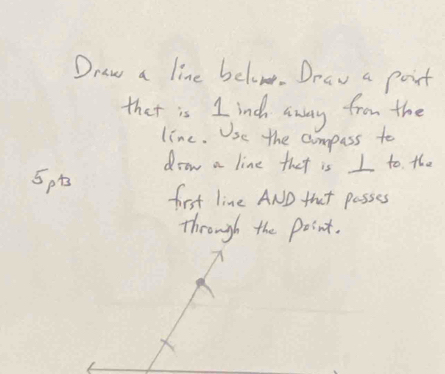 Draw a line below. Draw a point
that is 1 inch away from the
line. Use the compass to
draw a line that is ⊥ to the
5 pts
first line AND that passes
through the point.